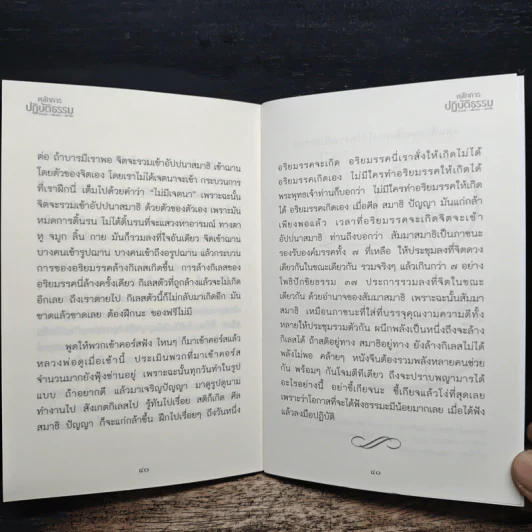 หลักการ
ปฏิบัติธรรม
ต่อ ถ้าบารมีเราพอ จิตจะรวมเข้าอัปปนาสมาธิ เข้าฌาน
โดยตัวของจิตเอง โดยเราไม่ได้เจตนาจะเข้า กระบวนการ
ที่เราฝึกนี่ เต็มไปด้วยคำว่า “ไม่มีเจตนา” เพราะฉะนั้น
จิตจะรวมเข้าอัปปนาสมาธิ ด้วยตัวของตัวเอง เพราะมัน
หมดการดิ้นรน ไม่ได้ดิ้นรนที่จะแสวงหาอารมณ์ ทางตา
หู จมูก ลิ้น กาย มันก็รวมลงที่ใจอันเดียว จิตเข้าฌาน
บางคนเข้ารูปฌาน บางคนเข้าถึงอรูปฌาน แล้วกระบวน
การของอริยมรรคล้างกิเลสเกิดขึ้น การล้างกิเลสของ
อริยมรรคนี่ล้างครั้งเดียว กิเลสตัวที่ถูกล้างแล้วจะไม่เกิด
อีกเลย ถึงเราตายไป กิเลสตัวนี้ก็ไม่กลับมาเกิดอีก มัน
ขาดแล้วขาดเลย ต้องฝึกนะ ของฟรีไม่มี
พูดให้พวกเข้าคอร์สฟัง ไหนๆ ก็มาเข้าคอร์สแล้ว
หลวงพ่อดูเมื่อเช้านี้ ประเมินพวกที่มาเข้าคอร์ส
จำนวนมากยังฟุ้งซ่านอยู่ เพราะฉะนั้นทุกวันทำในรูป
แบบ ถ้าอยากดี แล้วมาเจริญปัญญา มาดูรูปดูนาม
ทำงานไป สังเกตกิเลสไป รู้ทันไปเรื่อย สติก็เกิด ศีล
สมาธิ ปัญญา ก็จะแก่กล้าขึ้น ฝึกไปเรื่อยๆ ถึงวันหนึ่ง
หลักการ
ปฏิบัติธรรม
อริยมรรคจะเกิด อริยมรรคนี่เราสั่งให้เกิดไม่ได้
อริยมรรคเกิดเอง ไม่มีใครทำอริยมรรคให้เกิดได้
พระพุทธเจ้าท่านก็บอกว่า ไม่มีใครทำอริยมรรคให้เกิด
ได้ อริยมรรคเกิดเอง เมื่อศีล สมาธิ ปัญญา มันแก่กล้า
เพียงพอแล้ว เวลาที่อริยมรรคจะเกิดจิตจะเข้า
อัปปนาสมาธิ ท่านถึงบอกว่า สัมมาสมาธิเป็นภาชนะ
รองรับองค์มรรคทั้ง ๗ ที่เหลือ ให้ประชุมลงที่จิตดวง
เดียวกันในขณะเดียวกัน รวมจริงๆ แล้วเกินกว่า ๗ อย่าง
โพธิปักขิยธรรม ๓๗ ประการรวมลงที่จิตในขณะ
เดียวกัน ด้วยอำนาจของสัมมาสมาธิ เพราะฉะนั้นสัมมา
สมาธิ เหมือนภาชนะที่ใส่ที่บรรจุคุณงามความดีทั้ง
หลายให้ประชุมรวมด้วยกัน ผนึกพลังเป็นหนึ่งถึงจะล้าง
กิเลสได้ ถ้าสติอยู่ทาง สมาธิอยู่ทาง ยังล้างกิเลสไม่ได้
พลังไม่พอ คล้ายๆ หนังจีนต้องรวมพลังหลายคนช่วย
กัน พร้อมๆ กันโจมตีทีเดียว ถึงจะปราบพญามารได้
อะไรอย่างนี้ อย่าขี้เกียจนะ ขี้เกียจแล้วโง่ที่สุดเลย
เพราะว่าโอกาสที่จะได้ฟังธรรมะมีน้อยมากเลย เมื่อได้ฟัง
แล้วลงมือปฏิบัติ